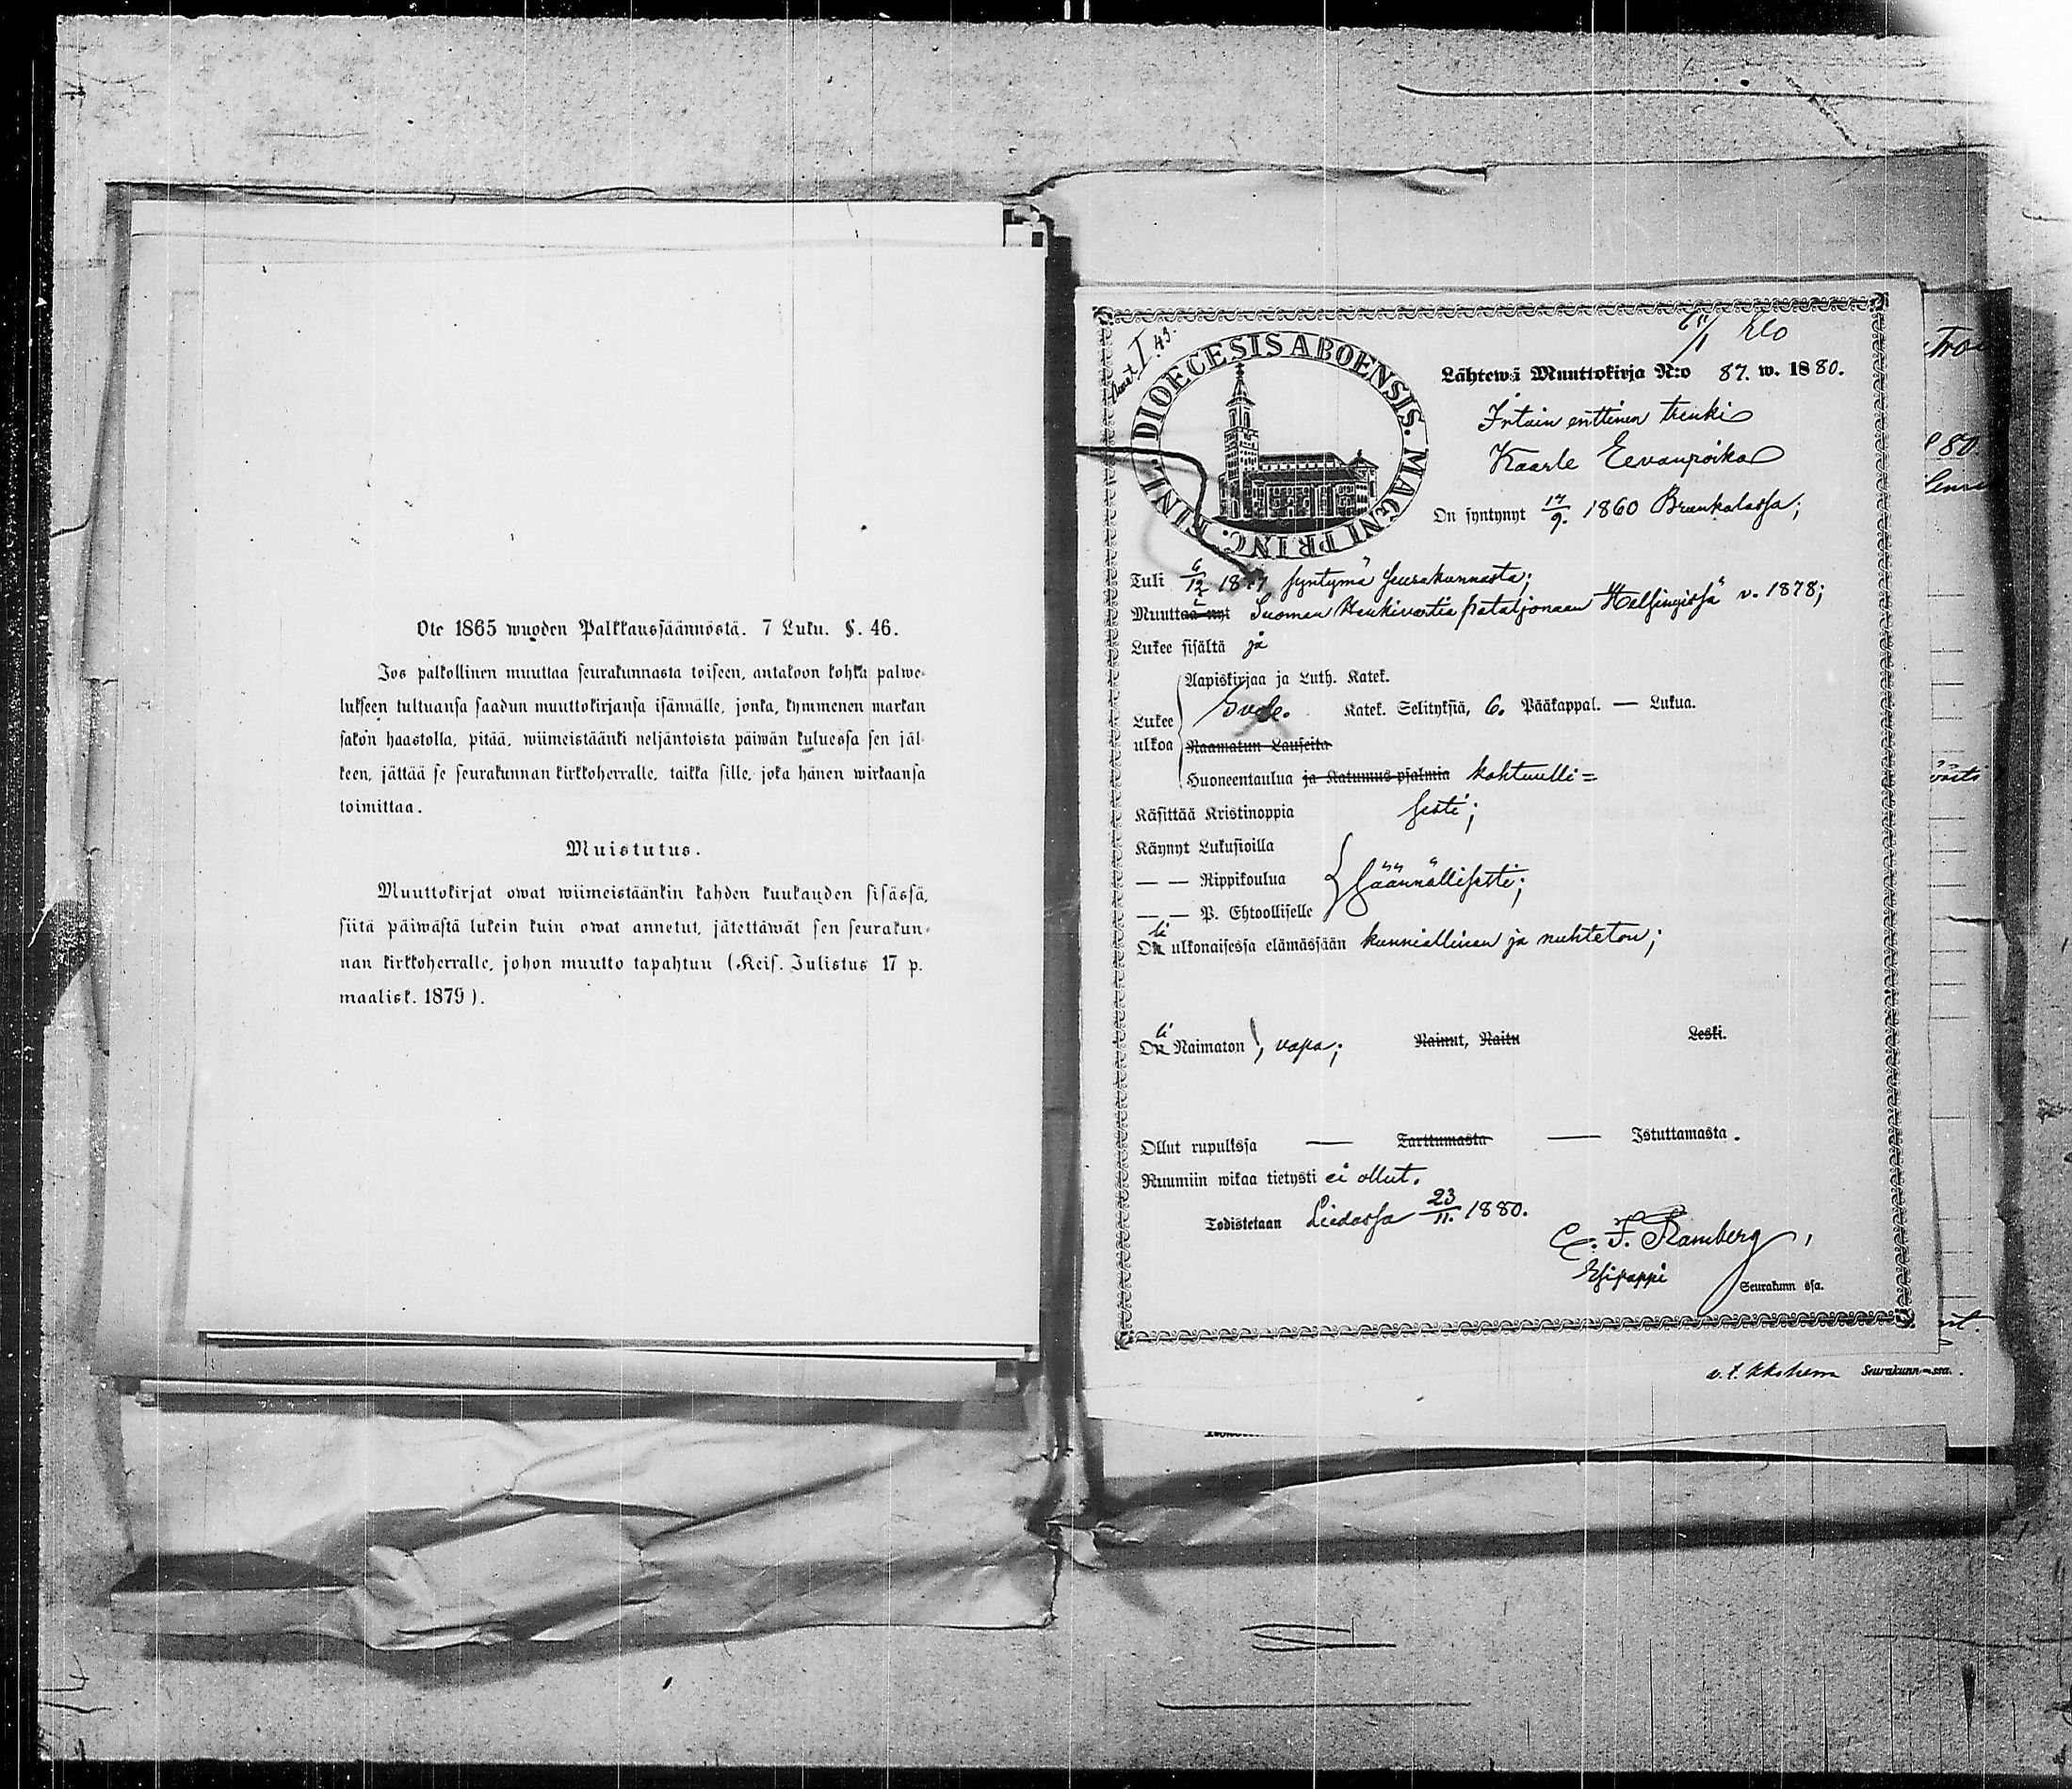 Ote 1865 wuoden Palkkaussäännöstä. 7 Luku. §. 46.
Jos palkollinen muuttaa seurakunnasta toiseen, antakoon kohta palwe-
lukseen tultuansa saadun muuttokirjansa isännälle, jonka, kymmenen markan
sakon haastolla, pitää, wiimeistäänki neljäntoista päiwän kuluessa sen jäl-
keen, jättää se seurakunnan kirkkoherralle, taikka sille, joka hänen wirkaansa
toimittaa.
Muistutus.
Muuttokirjat owat wiimeistäänkin kahden kuukauden sisässä,
siitä päiwästä lukein kuin owat annetut, jätettäwät sen seurakun-
nan kirkkoherralle, johon muutto tapahtuu (Keis. Julistus 17 p.
maalisk. 1879).
DIOECESIS ABOENSIS. MAGNI PRINC. FINL.
Lähtewä Muuttokirja N:o 87. w. 1880.
Irtain enttinen trenki
Kaarle Eevanpoika
On syntynyt 17/9. 1860 Brunkalassa;
Tuli 6/12 18 syntymä seurakunnasta;
Muuttaa nyt Suomen Henkivartia pataljonaan Helsingissä v. 1878;
Lukee sisältä ja
Aapiskirjaa ja Luth. Katek.
Lukee Svebe. Katek. Selityksiä, 6. Pääkappal. — Lukua.
ulkoa Raamatun Lauseita
Huoneentaulua ja Katumus-psalmia kohtuulli=
Käsittää Kristinoppia sesti;
Käynyt Lukusioilla
— — Rippikoulua säännöllisesti;
— — P. Ehtoolliselle
Oli ulkonaisessa elämässään kunniallinen ja nuhteton;
Oli Naimaton, vapa; Nainut, Naitu Leski.
Ollut rupulissa — Tarttumasta — Istuttamasta.
Ruumiin wikaa tietysti ei ollut.
Todistetaan Liedossa 23/11. 1880.
C. F. Ramberg,
Esipappi Seurakunn ssa.
Seurakunn—ssa.